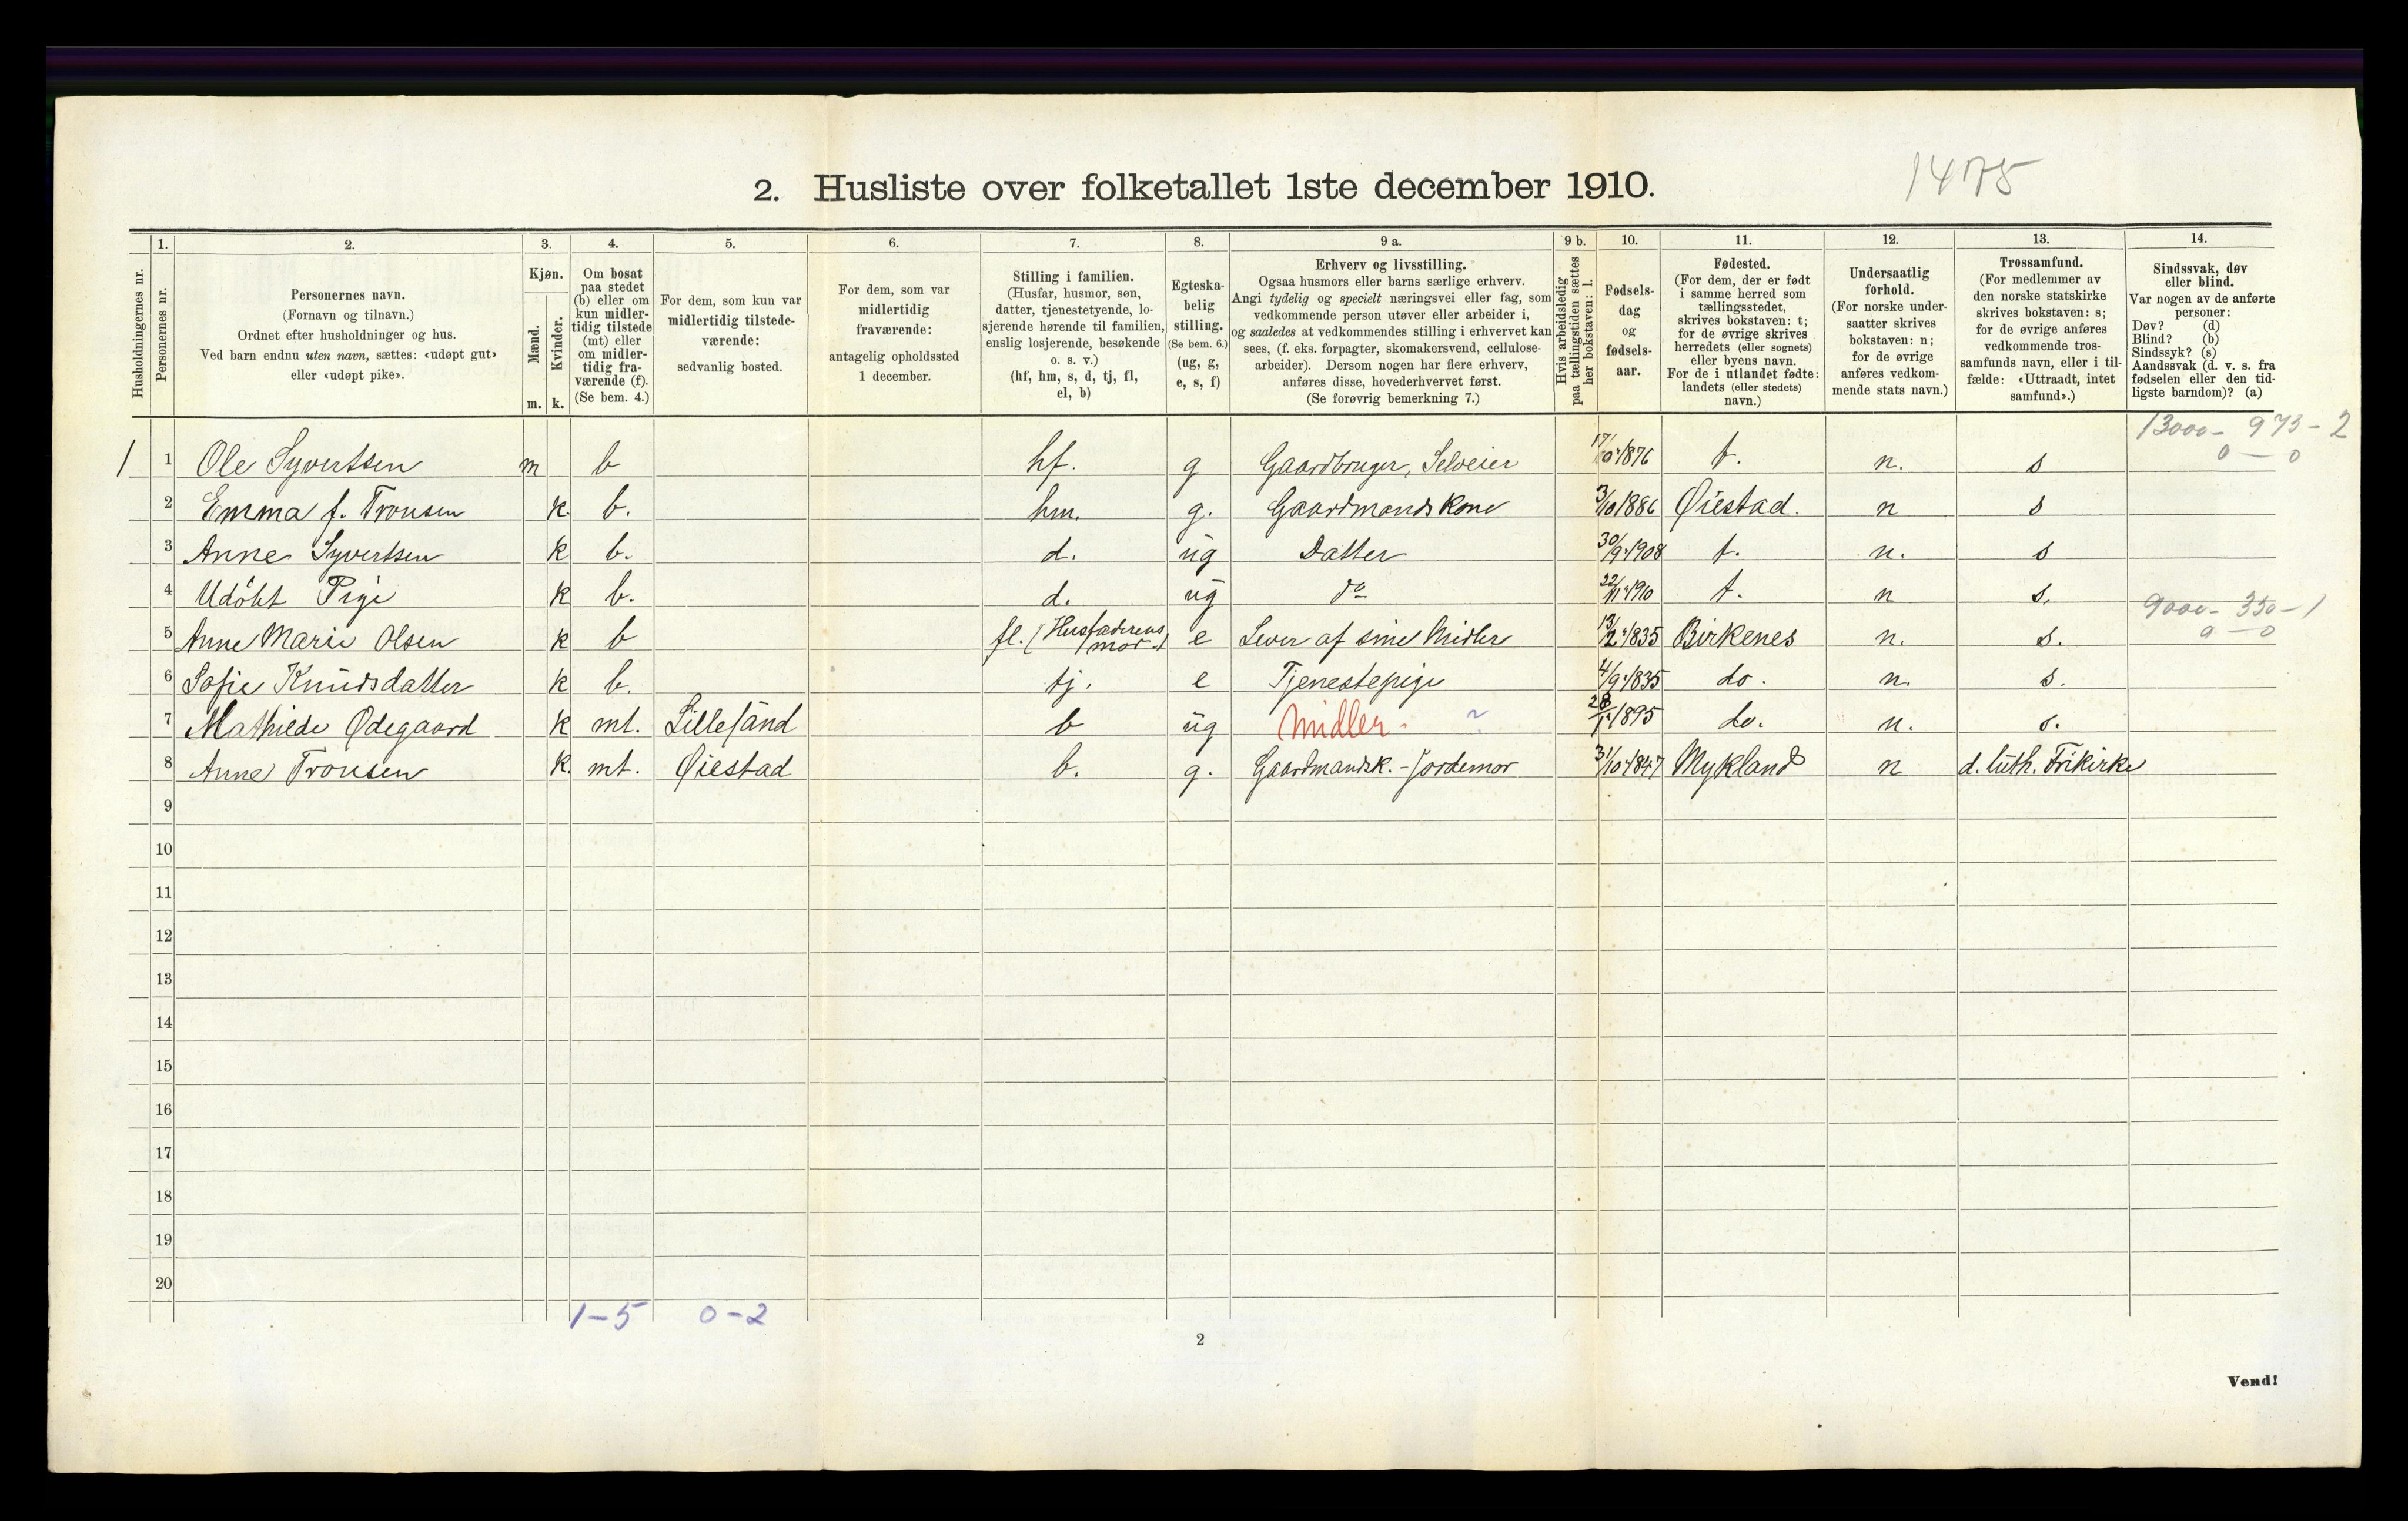 1475
2. Husliste over folketallet 1ste december 1910.
Husholdningernes nr.
1. Personernes nr.
2. Personernes navn.
(Fornavn og tilnavn.)
Ordnet efter husholdninger og hus.
Ved barn endnu uten navn, sættes: «udøpt gut»
eller «udøpt pike».
3. Kjøn.
Mænd. m.
Kvinder. k.
4. Om bosat
paa stedet
(b) eller om
kun midler-
tidig tilstede
(mt) eller
om midler-
tidig fra-
værende (f).
(Se bem. 4.)
5. For dem, som kun var
midlertidig tilstede-
værende:
sedvanlig bosted.
6. For dem, som var
midlertidig
fraværende:
antagelig opholdssted
1 december.
7. Stilling i familien.
(Husfar, husmor, søn,
datter, tjenestetyende, lo-
sjerende hørende til familien,
enslig losjerende, besøkende
o. s. v.)
(hf, hm, s, d, tj, fl,
el, b)
8. Egteska-
belig
stilling.
(Se bem. 6.)
(ug, g,
e, s, f)
9 a. Erhverv og livsstilling.
Ogsaa husmors eller barns særlige erhverv.
Angi tydelig og specielt næringsvei eller fag, som
vedkommende person utøver eller arbeider i,
og saaledes at vedkommendes stilling i erhvervet kan
sees, (f. eks. forpagter, skomakersvend, cellulose-
arbeider). Dersom nogen har flere erhverv,
anføres disse, hovederhvervet først.
(Se forøvrig bemerkning 7.)
9 b. Hvis arbeidsledig
paa tællingstiden sættes
her bokstaven: l.
10. Fødsels-
dag
og
fødsels-
aar.
11. Fødested.
(For dem, der er født
i samme herred som
tællingsstedet,
skrives bokstaven: t;
for de øvrige skrives
herredets (eller sognets)
eller byens navn.
For de i utlandet fødte:
landets (eller stedets)
navn.)
12. Undersaatlig
forhold.
(For norske under-
saatter skrives
bokstaven: n;
for de øvrige
anføres vedkom-
mende stats navn.)
13. Trossamfund.
(For medlemmer av
den norske statskirke
skrives bokstaven: s;
for de øvrige anføres
vedkommende tros-
samfunds navn, eller i til-
fælde: «Uttraadt, intet
samfund».)
14. Sindssvak, døv
eller blind.
Var nogen av de anførte
personer:
Døv? (d)
Blind? (b)
Sindssyk? (s)
Aandssvak (d. v. s. fra
fødselen eller den tid-
ligste barndom)? (a)
13000 - 973 - 2
0 - 0
1 1 Ole Syvertsen m b hf. g Gaardbruger, Selveier 17/10 1876 t. n. s
2 Emma f. Tronsen k b. hm. g. Gaardmandskone 3/10 1886 Øiestad. n s
3 Anne Syvertsen k b. d. ug Datter 30/9 1908 t. n. s
4 Udöbt Pige k b. d. ug do 22/11 1910 t. n s.
9000 - 350 - 1
0 - 0
5 Anne Marie Olsen k b fl. (Husfaderens mor.) e Lever af sine Midler 13/2 1835 Birkenes n. s.
6 Sofie Knudsdatter k b. tj. e Tjenestepige 4/9 1835 do. n. s.
7 Mathilde Ødegaard k mt. Lillesand b ug Midler. ~ 28/1 1895 do. n. s.
8 Anne Tronsen k. mt. Øiestad b. g. Gaardmandsk. - Jordemor 31/10 1847 Mykland n d. luth. Frikirke
9
10
11
12
13
14
15
16
17
18
19
20
1-5 0-2
2
Vend!